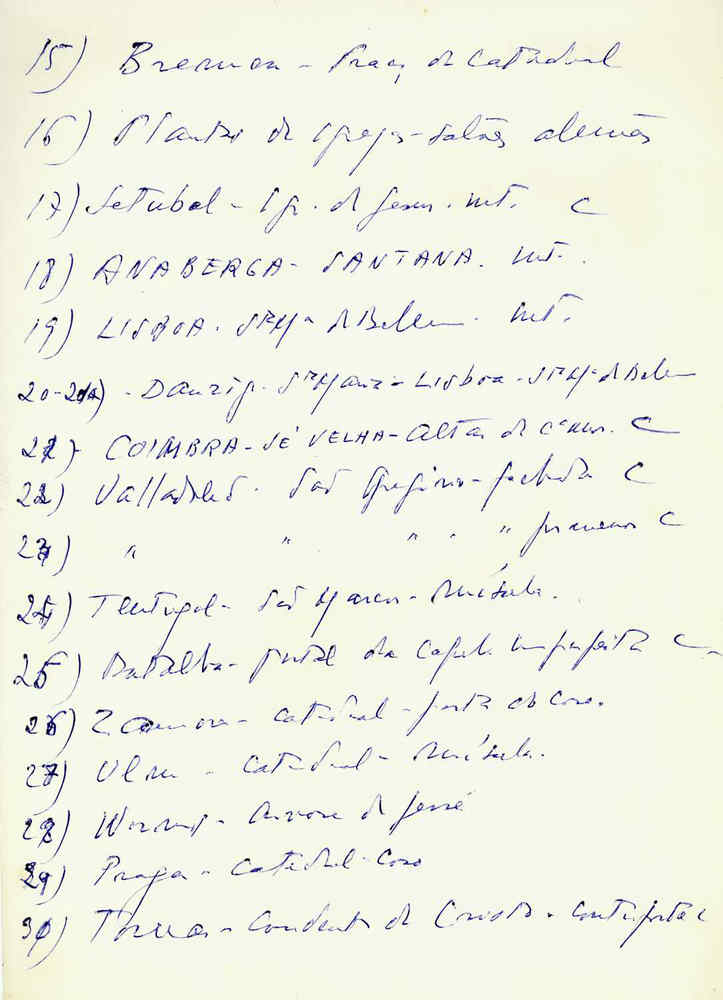 15) Bremen - Praça da Catedral
16) Plantas de igrejas-salões alemãs
17) Setubal - Igr. de Jesus. int. C
18) ANABERGA - SANTANA. int.
19) LISBOA. Sta Ma de Belem. int.
20-21) - Danzig. Sta Maria - Lisboa - Sta Ma de Belem
22) COIMBRA - SÉ VELHA - Altar C
23) Valladolid. São Gregorio - fachada C
24) " " " . " C
24) Tentugal - São Marcos - Mísula.
25) Batalha - portal da Capela imperfeita C
26) Zamora - Catedral - porta do Coro.
27) Ulm - Catedral - Mísula.
28) Worms - Arvore de Jessé
29) Praga - Catedral - Coro
30) Tomar - Convento de Cristo - contraforte C